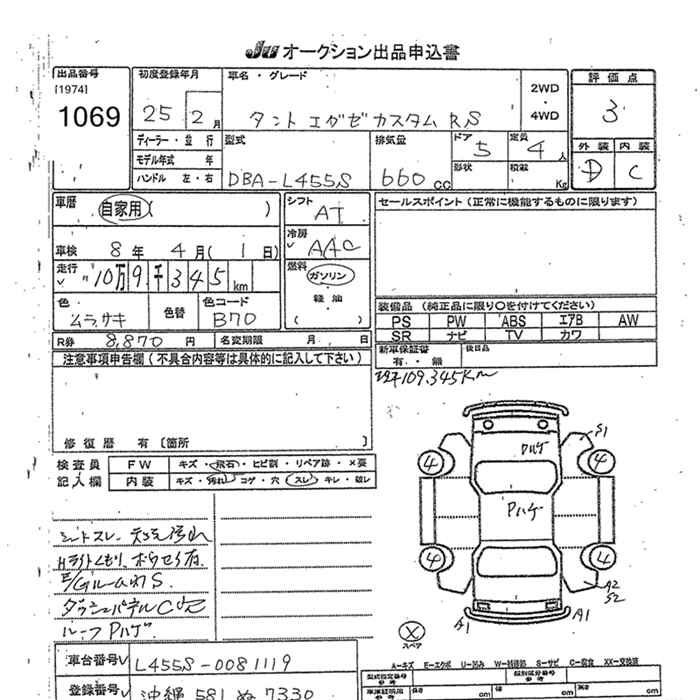 JU オークション出品申込書
出品番号 初度登録年月 車名・グレード 評価点
[1974]
1069 25 2月 タント エグゼ カスタム RS 2WD ・ 4WD 3
ディーラー・並行 型式 排気量 ドア 定員 外装 内装
モデル年式 年 5 4人
ハンドル 左・右 DBA-L455S 660cc 形状 積載 Kg D C
車歴 自家用( ) シフト AT セールスポイント(正常に機能するものに限ります)
車検 8年 4月( 1日) 冷房 AAC
走行 10万9千345km 燃料 ガソリン
軽油
( )
色 ムラサキ 色替 色コード B70 装備品(純正品に限り○を付けてください)
PS PW ABS エアB AW
SR ナビ TV カワ
R券 8,870円 名変期限 月 日 新車保証書 後日品
有・無
注意事項申告欄(不具合内容等は具体的に記入して下さい)
109,345Km
修復歴 有 [箇所 ]
検査員 FW キズ・飛石・ヒビ割・リペア跡・×要
記入欄 内装 キズ・汚れ・コゲ・穴・スレ・キレ・破レ
シートスレ 天々汚れ
Hライトくもり、ホウセキ有
E/Gルーム内S
ダッシュパネルC
ルーフPハゲ
S1
Pハゲ
4 4
Pハゲ
4 4
A2
S2
A1 A1
×
スペア
A-キズ E-エクボ U-凹み W-補修跡 S-サビ C-腐食 XX-交換済
車台番号 L455S-0081119 型式指定番号 類別区分番号
参考 参考
登録番号 沖縄 581 ぬ 7330 長さ cm 幅 cm 高さ cm